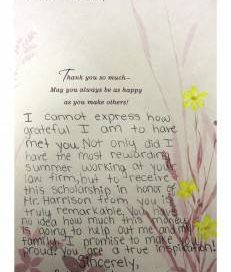 Thank you so much—
May you always be as happy
as you make others!
I cannot express how
grateful I am to have
met you. Not only did I
have the most rewarding
summer working at your
law firm, but to receive
this scholarship in honor of
Mr. Harrison from you is
truly remarkable. You have
no idea how much this money
is going to help out me and my
family. I promise to make you
proud! You are a true inspiration!
Sincerely,